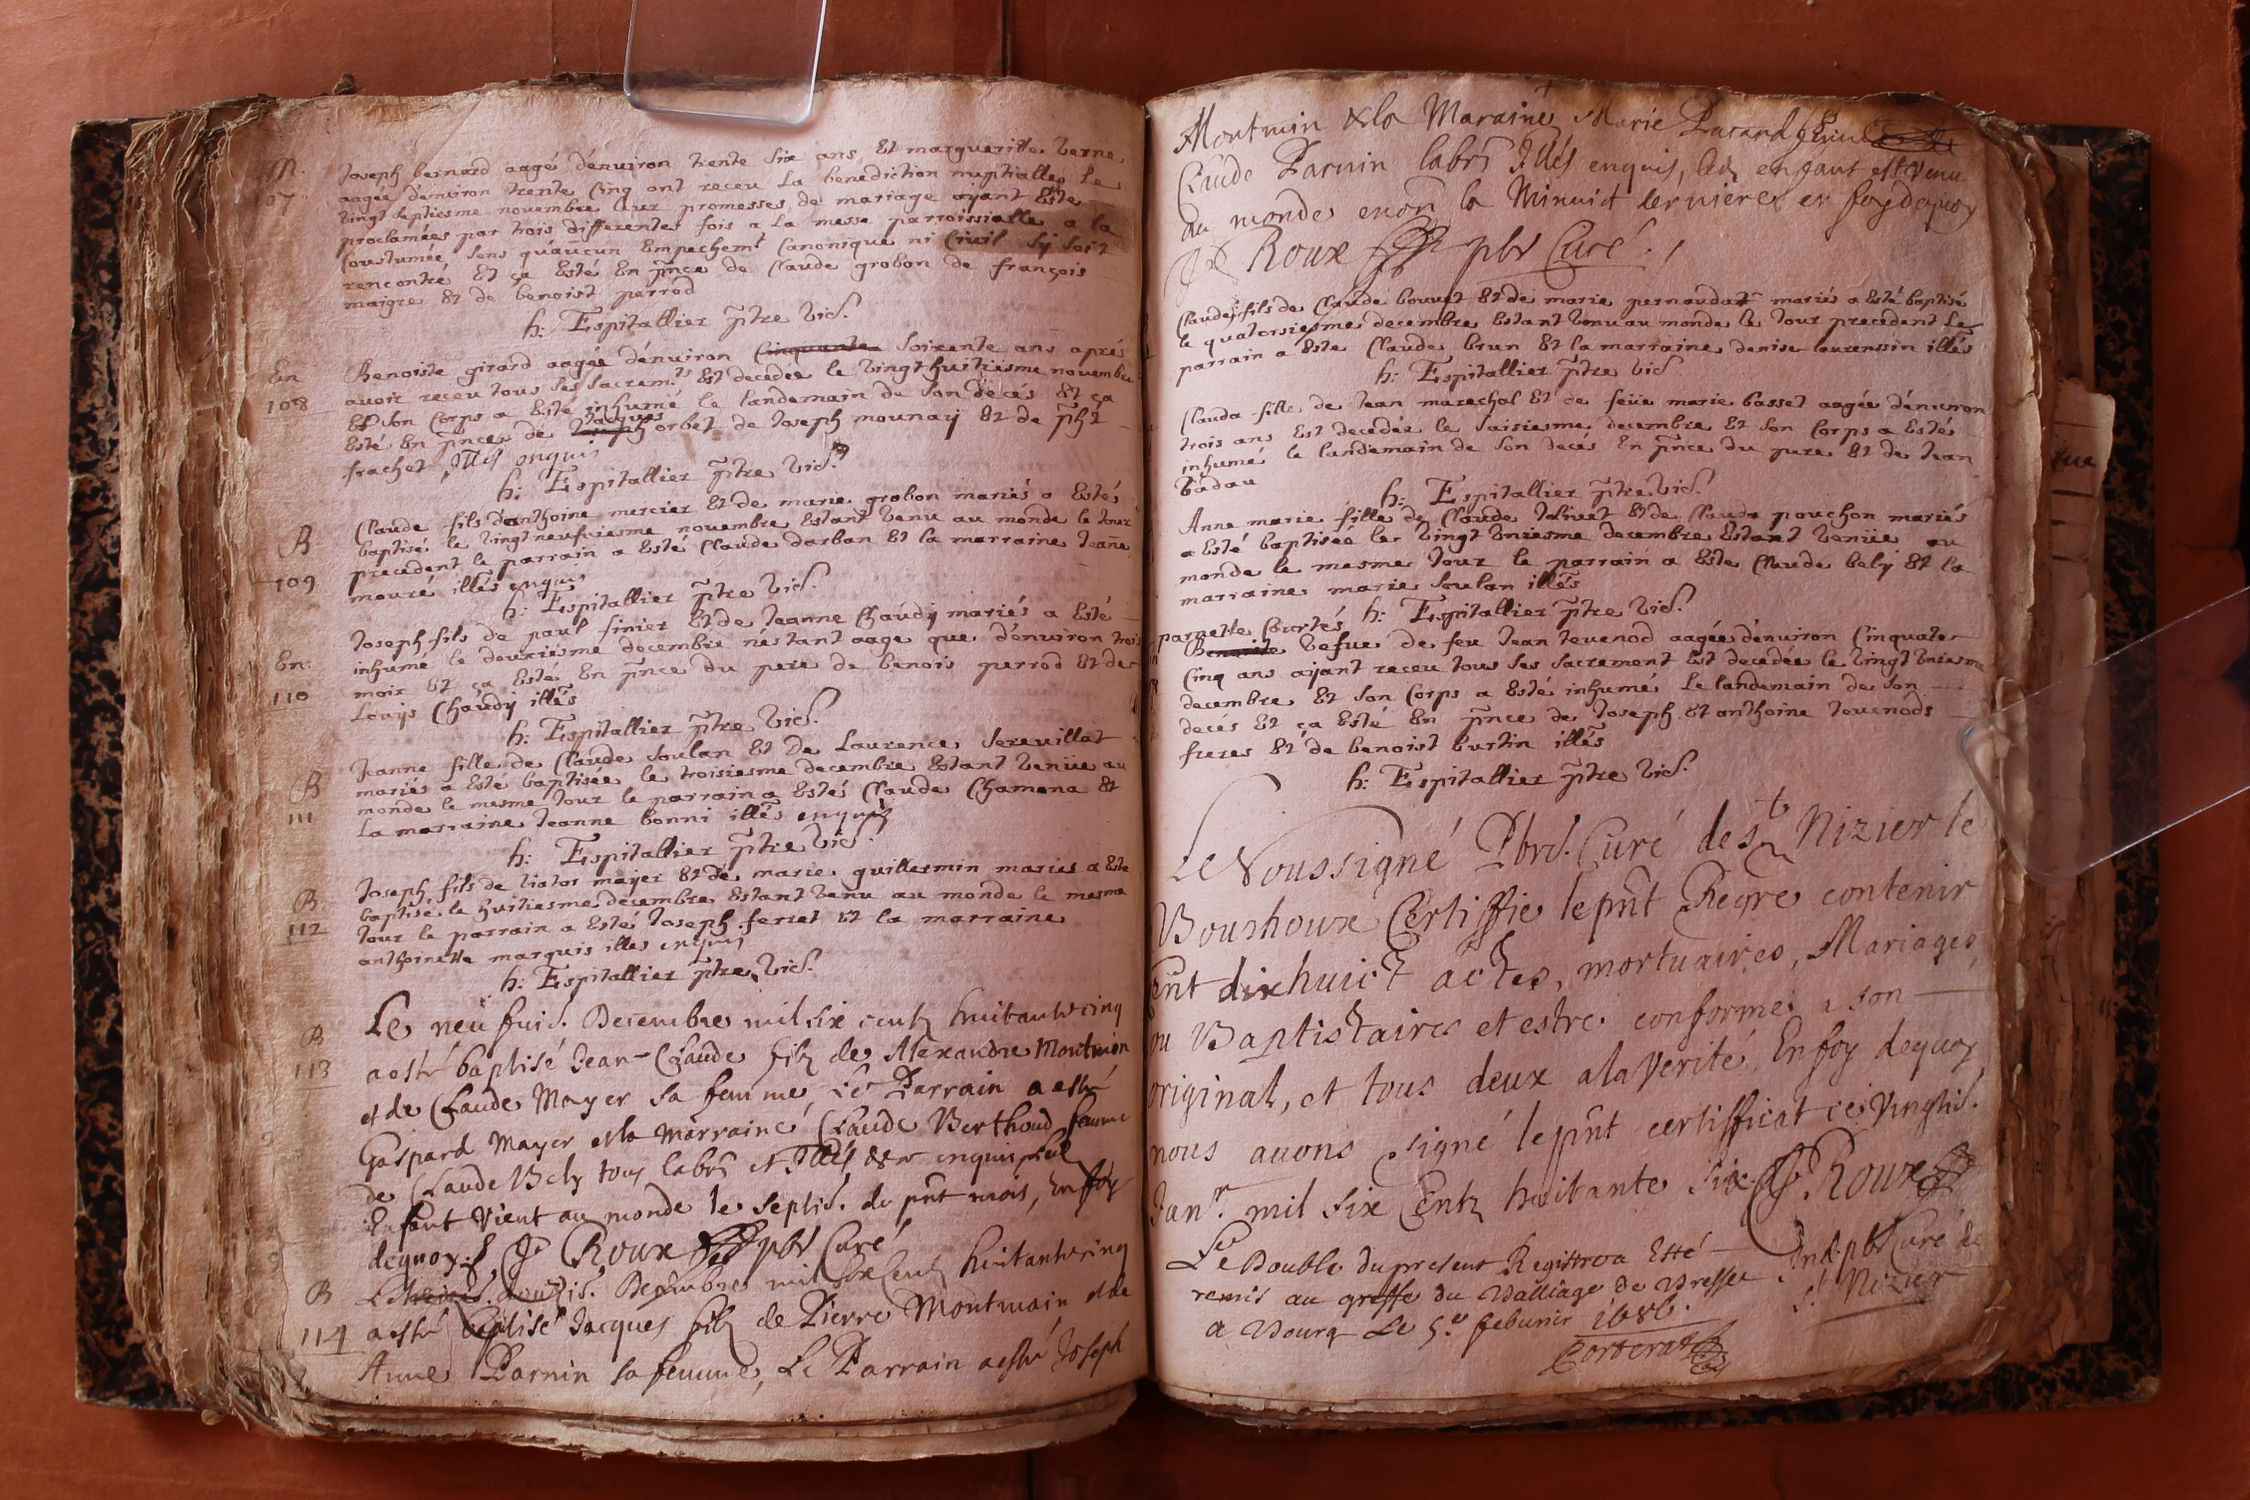 M.
107
Joseph bernard aagé dénviron trente six ans Et margueritte Verne
aagée dénviron trente cinq ont receu La benediction nuptialle Le
vingt septiesme novembre Leur promesses de mariage ayant Esté
proclamées par trois differentes fois a La messe parroissialle a la
Coustumée sens quáucun Empechemt Canonique ni Civil sy soit
rencontré Et ça Esté En pnce de Claude grobon de françois
maigre Et de benoist perrod
h: Espitallier ptre vic.
En
108
Benoiste girard aagée dénviron cinquante soixente ans aprés
avoir receu tous ses sacremts Est decedée le vingt huitiesme novembre
Et son Corps a Esté inhumé le landemain de son decés Et ça
Esté En pnce de Joseph Jacques orbet de Joseph mounay Et de pht
frachet Illes enquis
h: Espitallier ptre vic.
B
109
Claude fils dánthoine mercier Et de marie grobon mariés a Estés
baptisé le vingt neufviesme novembre Estant venu au monde le Jour
precedent le parrain a Esté Claude darban Et la marraine Jeanne
mouré illés enquis
h: Espitallier ptre vic.
En:
110
Joseph fils de paul finier Et de Jeanne Chaudy mariés a Esté
inhumé le deuxiésme decembre néstant aage que dénviron trois
mois Et ça Esté En pnce du pere de benois perrod Et de
Louys Chaudy illés
h: Espitallier ptre vic.
B
111
Jeanne fille de Claude soulan Et de Laurence serevillat
mariés a Esté baptisée le troisiesme decembre Estant venüe au
monde le mesme Jour le parrain a Estés Claude Chamona Et
La marraine Jeanne bonni illés enquis
h: Espitallier ptre vic.
B
112
Joseph fils de viator mayer Et de marie guillermin mariés a Esté
baptisé le huitiesme decembre Estant venu au monde le mesme
Jour le parrain a Esté Joseph ferret Et la marraine
anthoinette marquis illes enquis
h: Espitallier ptre vic.
B
113
Le neufuis. Decembre mil six centz huitante cinq
a esté baptisé Jean-Claude filz de Alexandre Montmin
et de Claude Mayer sa femme, Le Parrain a esté
Gaspard Mayer et la Marraine Claude Berthoud femme
de Claude Bely tous labrs et Illes enquis, led
Enfant Vient au monde le septis. du pnt mois, En foy
dequoy. Roux pbr Curé
B
114
Le douzis. Decembre mil six centz huitante cinq
a esté baptisé Jacques filz de Pierre Montmain et de
Anne Parnin sa femme, Le Parrain a esté Joseph
Montmin & la Maraine Marie Pacard femme
Claude Parnin labrs Illés enquis, led enfant est venu
au monde enon la Minuit derniere en foy dequoy
Roux pbr Curé.
Claude fils de Claude bouvet Et de marie pernaudat mariés a Esté baptisé
le quatorsiesme decembre Estant venu au monde le Jour precedent Le
parrain a Este Claude brun Et la marraine denise laurenssin illés
h: Espitallier ptre vic.
Clauda fille de Jean marechal Et de feüe marie basset aagée dénviron
trois ans Est decedée le saisiesme decembre Et son Corps a Estés
inhumé le landemain de son decés En pnce du pere Et de Jean
badau
h: Espitallier ptre vic.
Anne marie fille de Claude Jolivet Et de Clauda pouchon mariés
a Esté baptisée le vingt Uniesme decembre Estant venüe au
monde le mesme Jour le parrain a Este Claude bely Et la
marraine marie soulan illés
h: Espitallier ptre vic.
parnette Courtés
Benoiste vefue de feu Jean Jeuenod aagée dénviron Cinquate
Cinq ans ayant receu tous ses sacrement Est decedée le vingt Uniesme
decembre Et son Corps a Esté inhumé Le landemain de son
decés Et ça Esté En pnce de Joseph Et anthoine Jouenods
freres Et de benoist burtin illés
h: Espitallier ptre vic.
Le Soussigné Pbre. Curé de St Nizier le
Bouchoux Certiffie le pnt Regre contenir
Cent dixhuict actes, mortuaires, Mariages,
ou Baptistaires et estre conforme a son
original, et tous deux a la Verité, En foy dequoy
nous avons signé le pnt certifficat ce Vingtis.
Janr. mil six Centz huitante six Roux
Ind. pbr Curé de
St. Nizier
Le Double du present Registre a Esté
remis au greffe du Balliage de Bresse
a Bourg Le 5.e feburier 1686.